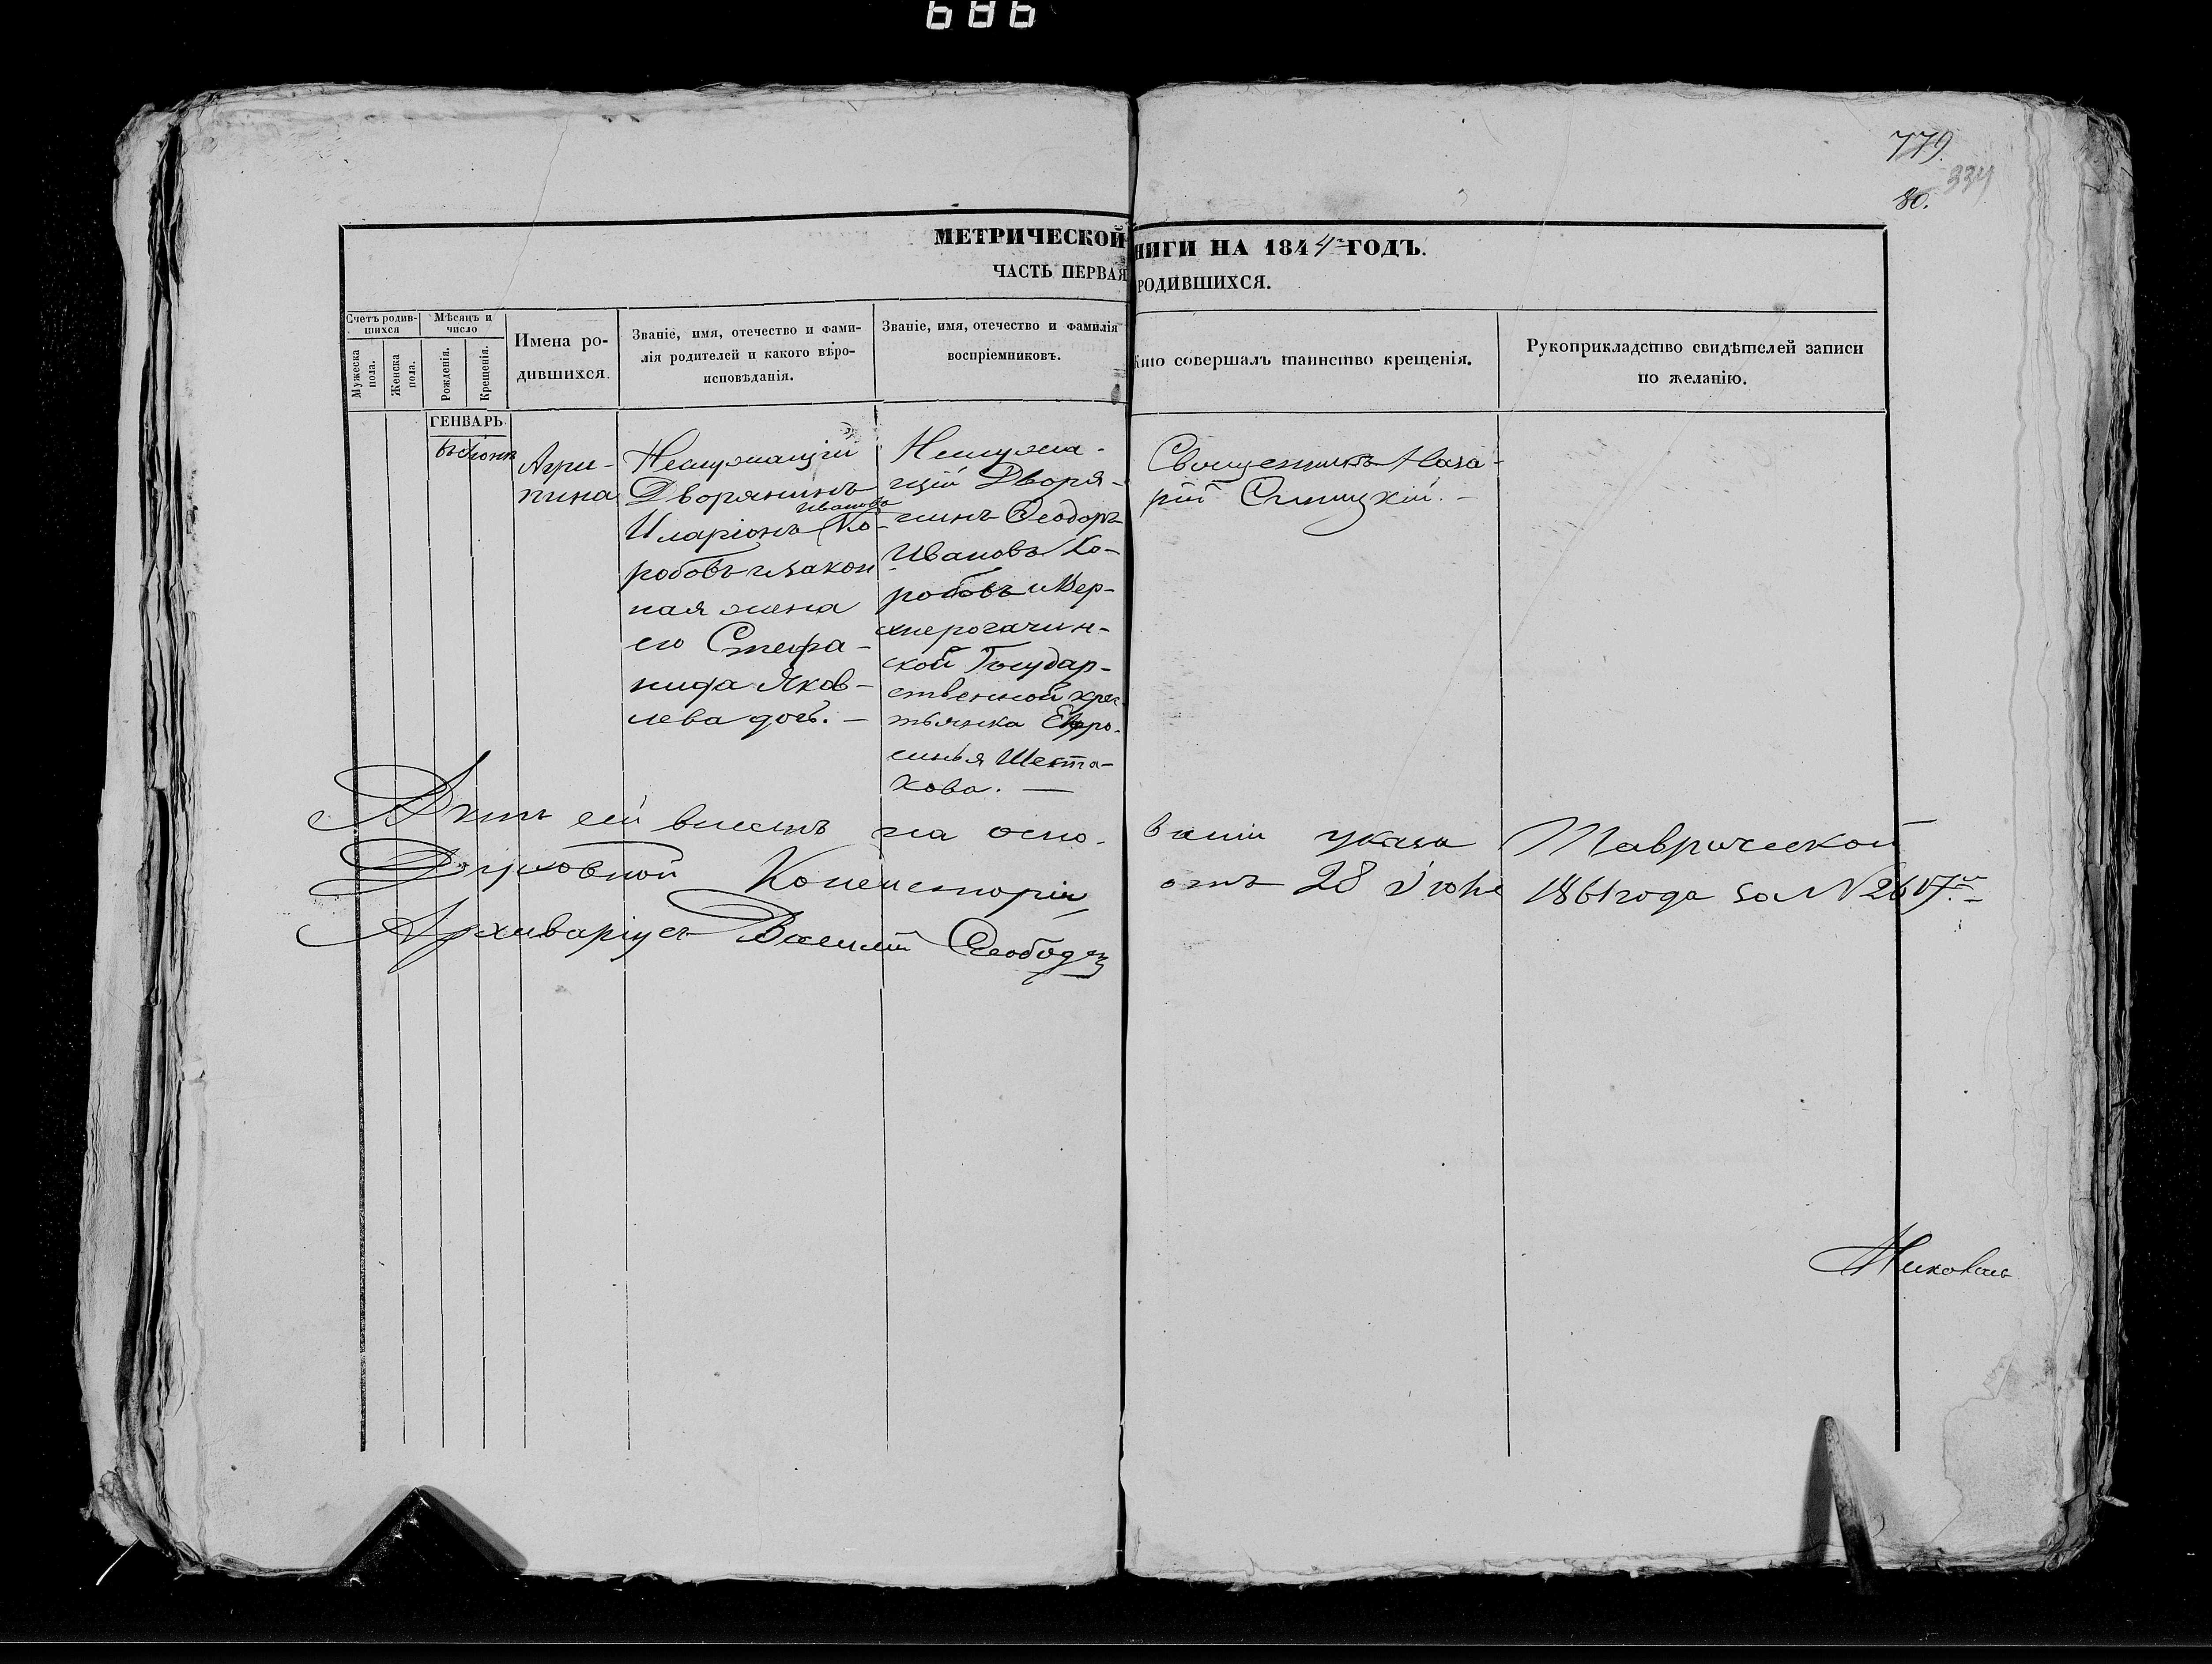 686
779.
334
80.
МЕТРИЧЕСКОЙ НИГИ НА 1844 ГОДЪ.
ЧАСТЬ ПЕРВАЯ РОДИВШИХСЯ.
Счетъ родив-
шихся
Мужеска пола.
Женска пола.
Мѣсяцъ и
число
Рожденія.
Крещенія.
Имена ро-
дившихся.
Званіе, имя, отечество и фами-
лія родителей и какого вѣро-
исповѣданія.
Званіе, имя, отечество и фамилія
воспріемниковъ.
Кто совершалъ таинство крещенія.
Рукоприкладство свидѣтелей записи
по желанію.
ГЕНВАРЬ
въ Іюнѣ
Агри-
пина
Неслужащій
Дворянинъ
Иванова
Иларіонъ Ко-
робовъ и закон
ная жена
его Стефа-
нида Яков-
лева дочь. —
Неслужа-
щій Дворя-
нинъ Ѳеодоръ
Ивановъ Ко-
робовъ и Вер-
хнерогачин-
ской Государ-
ственной крес
тьянка Евфро-
синья Шеста-
кова. —
Священникъ Наза-
рій Синицкій. —
Актъ сей внесенъ на осно- ваніи указа Таврической
Духовной Консисторіи отъ 28 Іюня 1861 года за № 2617.
Архиваріусъ Василій